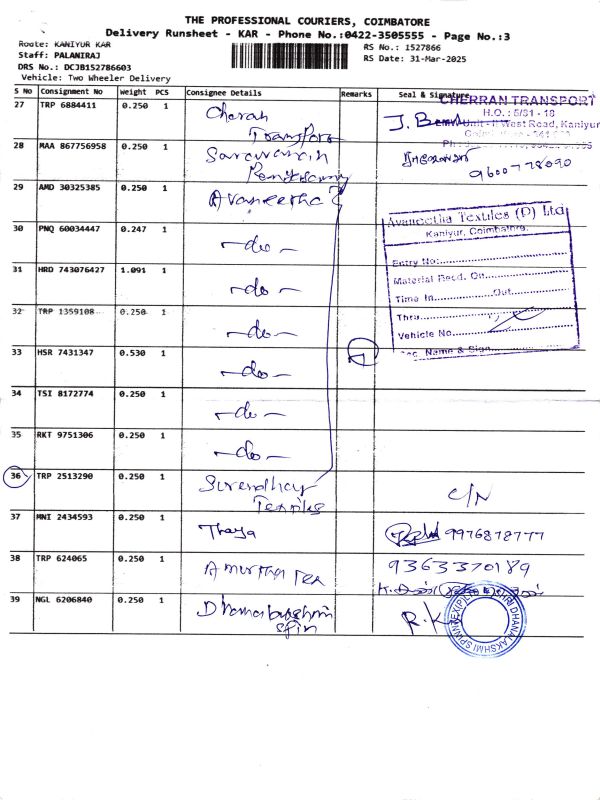 THE PROFESSIONAL COURIERS, COIMBATORE
Delivery Runsheet - KAR - Phone No.:0422-3505555 - Page No.:3
Route: KANIYUR KAR
RS No.: 1527866
Staff: PALANIRAJ
RS Date: 31-Mar-2025
DRS No.: DCJB152786603
Vehicle: Two Wheeler Delivery
S No Consignment No Weight PCS Consignee Details Remarks Seal & Signature
CHERRAN TRANSPORT
H.O.: 5/31 - 18
West Road, Kaniyur
27 TRP 6884411 0.250 1 Cheran
Transport
J.
28 MAA 867756958 0.250 1 Saravanan
9600778090
29 AMD 30325385 0.250 1 Avaneetha
Avaneetha Textiles (P) Ltd
Kaniyur, Coimbatore.
Entry No:
Material Recd. On
Time In Out
Thru
Vehicle No
Sec. Name & Sign
30 PNQ 60034447 0.247 1 -do-
31 HRD 743076427 1.091 1 -do-
32 TRP 1359108 0.250 1 -do-
33 HSR 7431347 0.530 1 -do-
34 TSI 8172774 0.250 1 -do-
35 RKT 9751306 0.250 1 -do-
36 TRP 2513290 0.250 1 Surendhar
Textiles
C/N
37 MNI 2434593 0.250 1 Thaya
9976878777
38 TRP 624065 0.250 1
9363370189
39 NGL 6206840 0.250 1 Dhanalakshmi
Spin
R.K
SHRI DHANALAKSHMI SPINNTEX